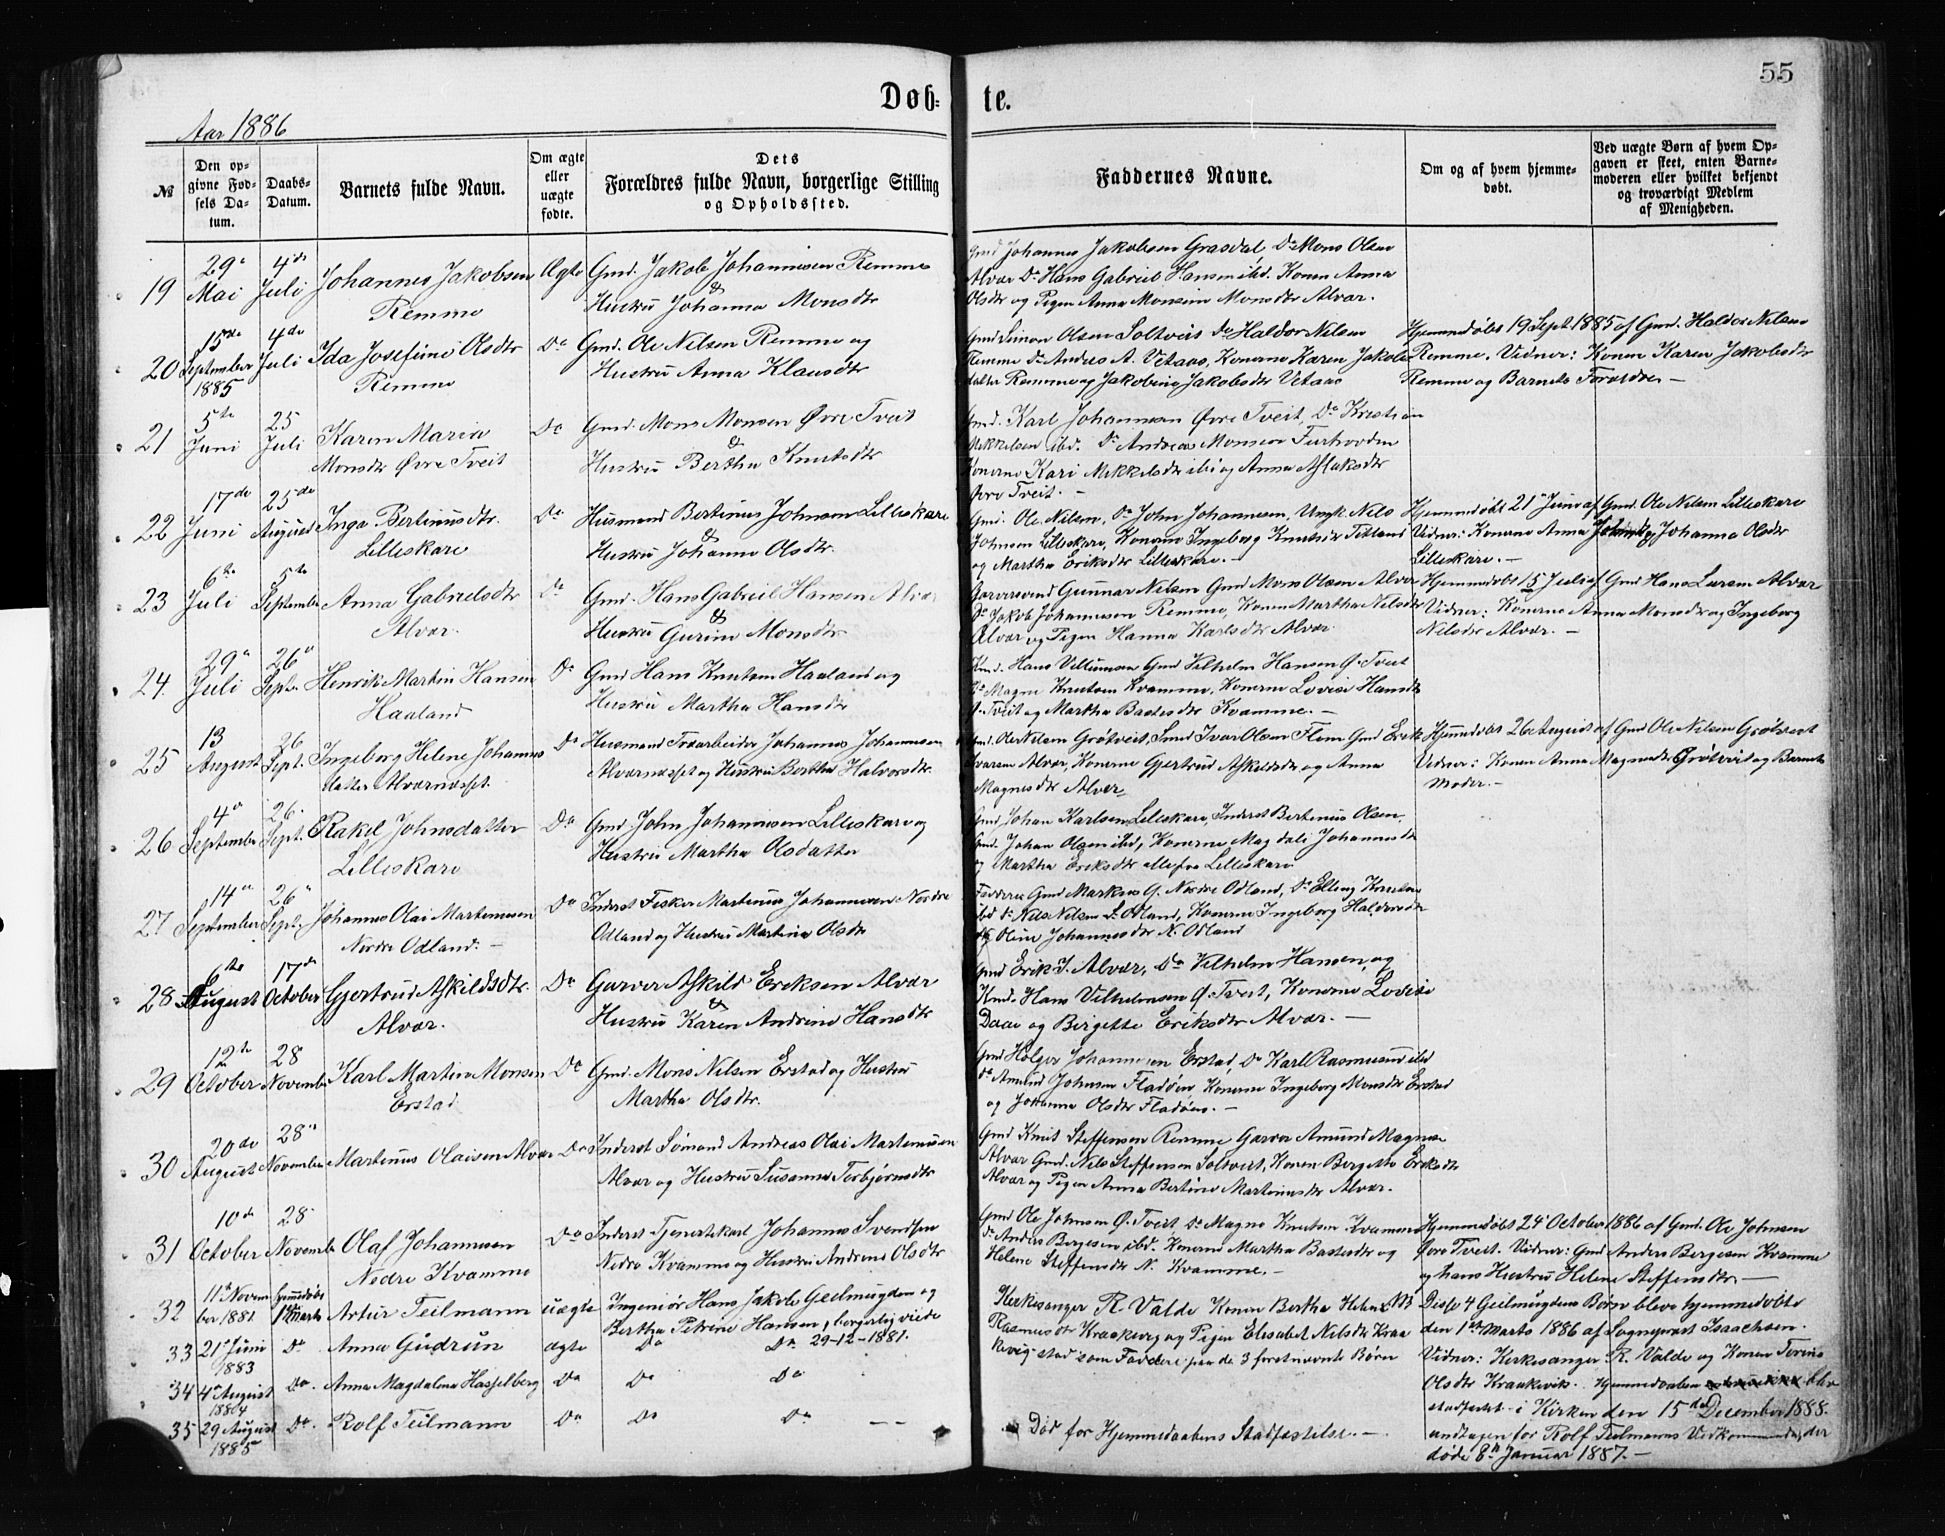 55
Døb- te.
Aar 1886
№
Den op-
givne Fød-
sels Da-
tum.
Daabs-
Datum.
Barnets fulde Navn.
Om ægte
eller
uægte
fødte.
Dets
Forældres fulde Navn, borgerlige Stilling
og Opholdssted.
Faddernes Navne.
Om og af hvem hjemme-
døbt.
Ved uægte Børn af hvem Op-
gaven er skeet, enten Barne-
moderen eller hvilket bekjendt
og troværdigt Medlem
af Menigheden.
19
29
Mai
4de
Juli
Johannes Jakobsen
Remme
Ægte
Gmd. Jakob Johannesen Remme
&
Hustru Johanna Monsdtr
Gmd Johannes Jakobsen Grasdal, Do Mons Olsen
Alvær Do Hans Gabriel Hansen ibd. Konen Anna
Olsdtr og Pigen Anna Monsine Monsdtr Alvær.
20
15de
September
1885
4de
Juli
Ida Josefine Olsdtr
Remme
Do
Gmd. Ole Nilsen Remme og
Hustru Anna Klausdtr
Gmd Simon Olsen Soltveit Do Haldor Nilsen
Remme Do Andreas A. Vetaas, Konerne Karen Jakobs
datter Remme og Jakobine Jakobsdtr Vetaas
Hjemmedøbt 19 Sept. 1885 af Gmd. Haldor Nilsen
Remme. Vidner: Konen Karen Jakobsdtr
Remme og Barnets Forældre. —
21
5te
Juni
25
Juli
Karen Maria
Monsdtr Øvre Tveit
Do
Gmd. Mons Monsen Øvre Tveit
&
Hustru Bertha Knutsdtr
Gmd. Karl Johannesen Øvre Tveit, Do Kristian
Mikkelsen ibd. Do Andreas Monsen Furhovden
Konerne Kari Mikkelsdtr ibd og Anna Aslaksdtr
Øvre Tveit. —
22
17de
Juni
25de
August
Inga Bertinusdtr.
Lilleskare
Do
Husmand Bertinus Johnsen Lilleskare
&
Hustru Johanne Olsdtr.
Gmd. Ole Nilsen, Do John Johannesen, Ungk. Nils
Johnsen Lilleskare, Konerne Ingeborg Knutsdtr Titland
og Martha Eriksdtr Lilleskare. —
Hjemmedøbt 21 Juni af Gmd. Ole Nilsen Lilleskare
Vidner: Konerne Anna og Johanna Olsdtr
Lilleskare. —
23
6te
Juli
5te
September
Anna Gabrielsdtr
Alvær.
Do
Gmd. Hans Gabriel Hansen Alvær
&
Hustru Gurine Monsdtr
Garversvend Gunnar Nilsen Gmd Mons Olsen Alvær
Do Jakob Johannesen Remme, Konen Martha Nilsdtr
Alvær og Pigen Hanna Karlsdtr Alvær
Hjemmedøbt 15 Juli af Gmd Hans Larsen Alvær
Vidner: Konerne Anna Monsdtr og Ingeborg
Nilsdtr Alvær. —
24.
29
Juli
26
Septbr
Henrik Martin Hansen
Haaland
Do
Gmd Hans Knutsen Haaland og
Hustru Martha Hansdtr
Gmd. Hans Villumsen Gmd Vilhelm Hansen Ø. Tveit
Do Magne Knutsen Kvamme, Konerne Lovise Hansdtr
Ø. Tveit og Martha Bastesdtr Kvamme. —
25
13
August
26
Sept.
Ingeborg Helene Johannes
datter Alvernæsset.
Do
Husmand Træarbeider Johannes Johannesen
Alværnæsset og Hustru Bertha Halvorsdtr.
Gmd. Ole Nilsen Grøtveit, Smed Ivar Olsen Flem Gmd Erik
Ivarsen Alvær, Konerne Gjertrud Askildsdtr og Anna
Magnesdtr Alvær
Hjemmedøbt 26 August af Gmd Ole Nilsen Grøtveit
Vidner: Konen Anna Magnesdtr Grøtveit og Barnets
Moder. —
26
4
September
26
Sept.
Rakel Johnsdatter
Lilleskare
Do
Gmd John Johannesen Lilleskare og
Hustru Martha Olsdatter
Gmd Johan Karlsen Lilleskare, Inderst Bertinus Olsen
Gmd. Johan Olsen ibd, Konerne Magdali Johannesdtr
og Martha Eriksdtr alle fra Lilleskare
27
14
September
26
Sept,
Johannes Olai Martinusen
Nordre Odland: —
Do
Inderst Fisker Martinus Johannesen Nordre
Odland og Hustru Martina Olsdtr
Faddere Gmd Markus G. Nordre Odland, Do Elling Knutsen
ibd Do Nils Nilsen S. Odland, Konerne Ingeborg Haldorsdtr
og Oline Johannesdtr N. Odland
28
6te
August
17de
October
Gjertrud Askildsdtr.
Alvær.
Do
Garver Askild Eriksen Alvær
&
Hustru Karen Andrine Hansdtr
Gmd Erik I. Alvær, Do Vilhelm Hansen og
Kmd. Hans Vilhelmsen Ø. Tveit, Konerne Lovise
Daae og Birgitte Eriksdtr Alvær. —
29
12te
October
28
November
Karl Martin Monsen
Erstad
Do
Gmd. Mons Nilsen Erstad og Hustru
Martha Olsdtr.
Gmd Holger Johannesen Erstad, Do Karl Rasmussen ibd
Do Amund Johnsen Fladøen Konerne Ingeborg Monsdtr Erstad
og Johanna Olsdtr Fladøen. —
30
20de
August
28
November
Martinus Olaisen Alvær
Do
Inderst Sømand Andreas Olai Martinusen
Alvær og Hustru Susanna Torbjørnsdtr
Gmd Knut Steffensen Remme Garver Amund Magnesen
Alvær Gmd. Nils Steffensen Soltveit, Konen Bergitte Eriksdtr
Alvær og Pigen Anna Bertine Martinusdtr Alvær.
31
10de
October
28
Novembr
Olaf Johannesen
Nedre Kvamme
Do
Inderst Tjenestekarl Johannes Svendsen
Nedre Kvamme og Hustru Andrine Olsdtr
Gmd Ole Johnsen Ø. Tveit Do Magne Knutsen Kvamme
Do Anders Bergesen ibd. Konerne Martha Bastesdtr og
Helene Steffensdtr N. Kvamme. —
Hjemmedøbt 24 October 1886 af Gmd. Ole Johnsen
Øvre Tveit. Vidner: Gmd Anders Bergesen Kvamme
og hans Hustru Helene Steffensdtr. —
32
11te Novem
ber 1881
hjemmedøbt
1ste Marts
Artur Teilmann
uægte
Ingeniør Hans Jakob Geelmuyden og
Bertha Petrine Hansen, borgerlig viede
Kirkesanger R. Valde Konen Bertha Helene M
Rasmusdtr Kraakevig og Pigen Elisabet Nilsdtr Kraa
kevig stod som Faddere paa de 3 førstnævnte Børn
Disse 4 Geelmuydens Børn bleve hjemmedøbte
den 1ste Marts 1886 af Sogneprest Isaachsen.
Vidner: Kirkesanger R. Valde og Konen Terine
Olsdtr Kraakevik. Hjemmedaaben blev
stadfæstet i Kirken den 15de December 1888.
undtagen for Rolf Teilmanns Vedkommende, der
døde 8de Januar 1887. —
33
21 Juni
1883
Do
Anna Gudrun
ægte
Do Do 29-12-1881.
34
4 August
1884
Do
Anna Magdalena Hasselberg
Do
Do Do
35
29 August
1885
Do.
Rolf Teilmann
Do
Do Do — —
Død før Hjemmedaabens Stadfæstelse. —